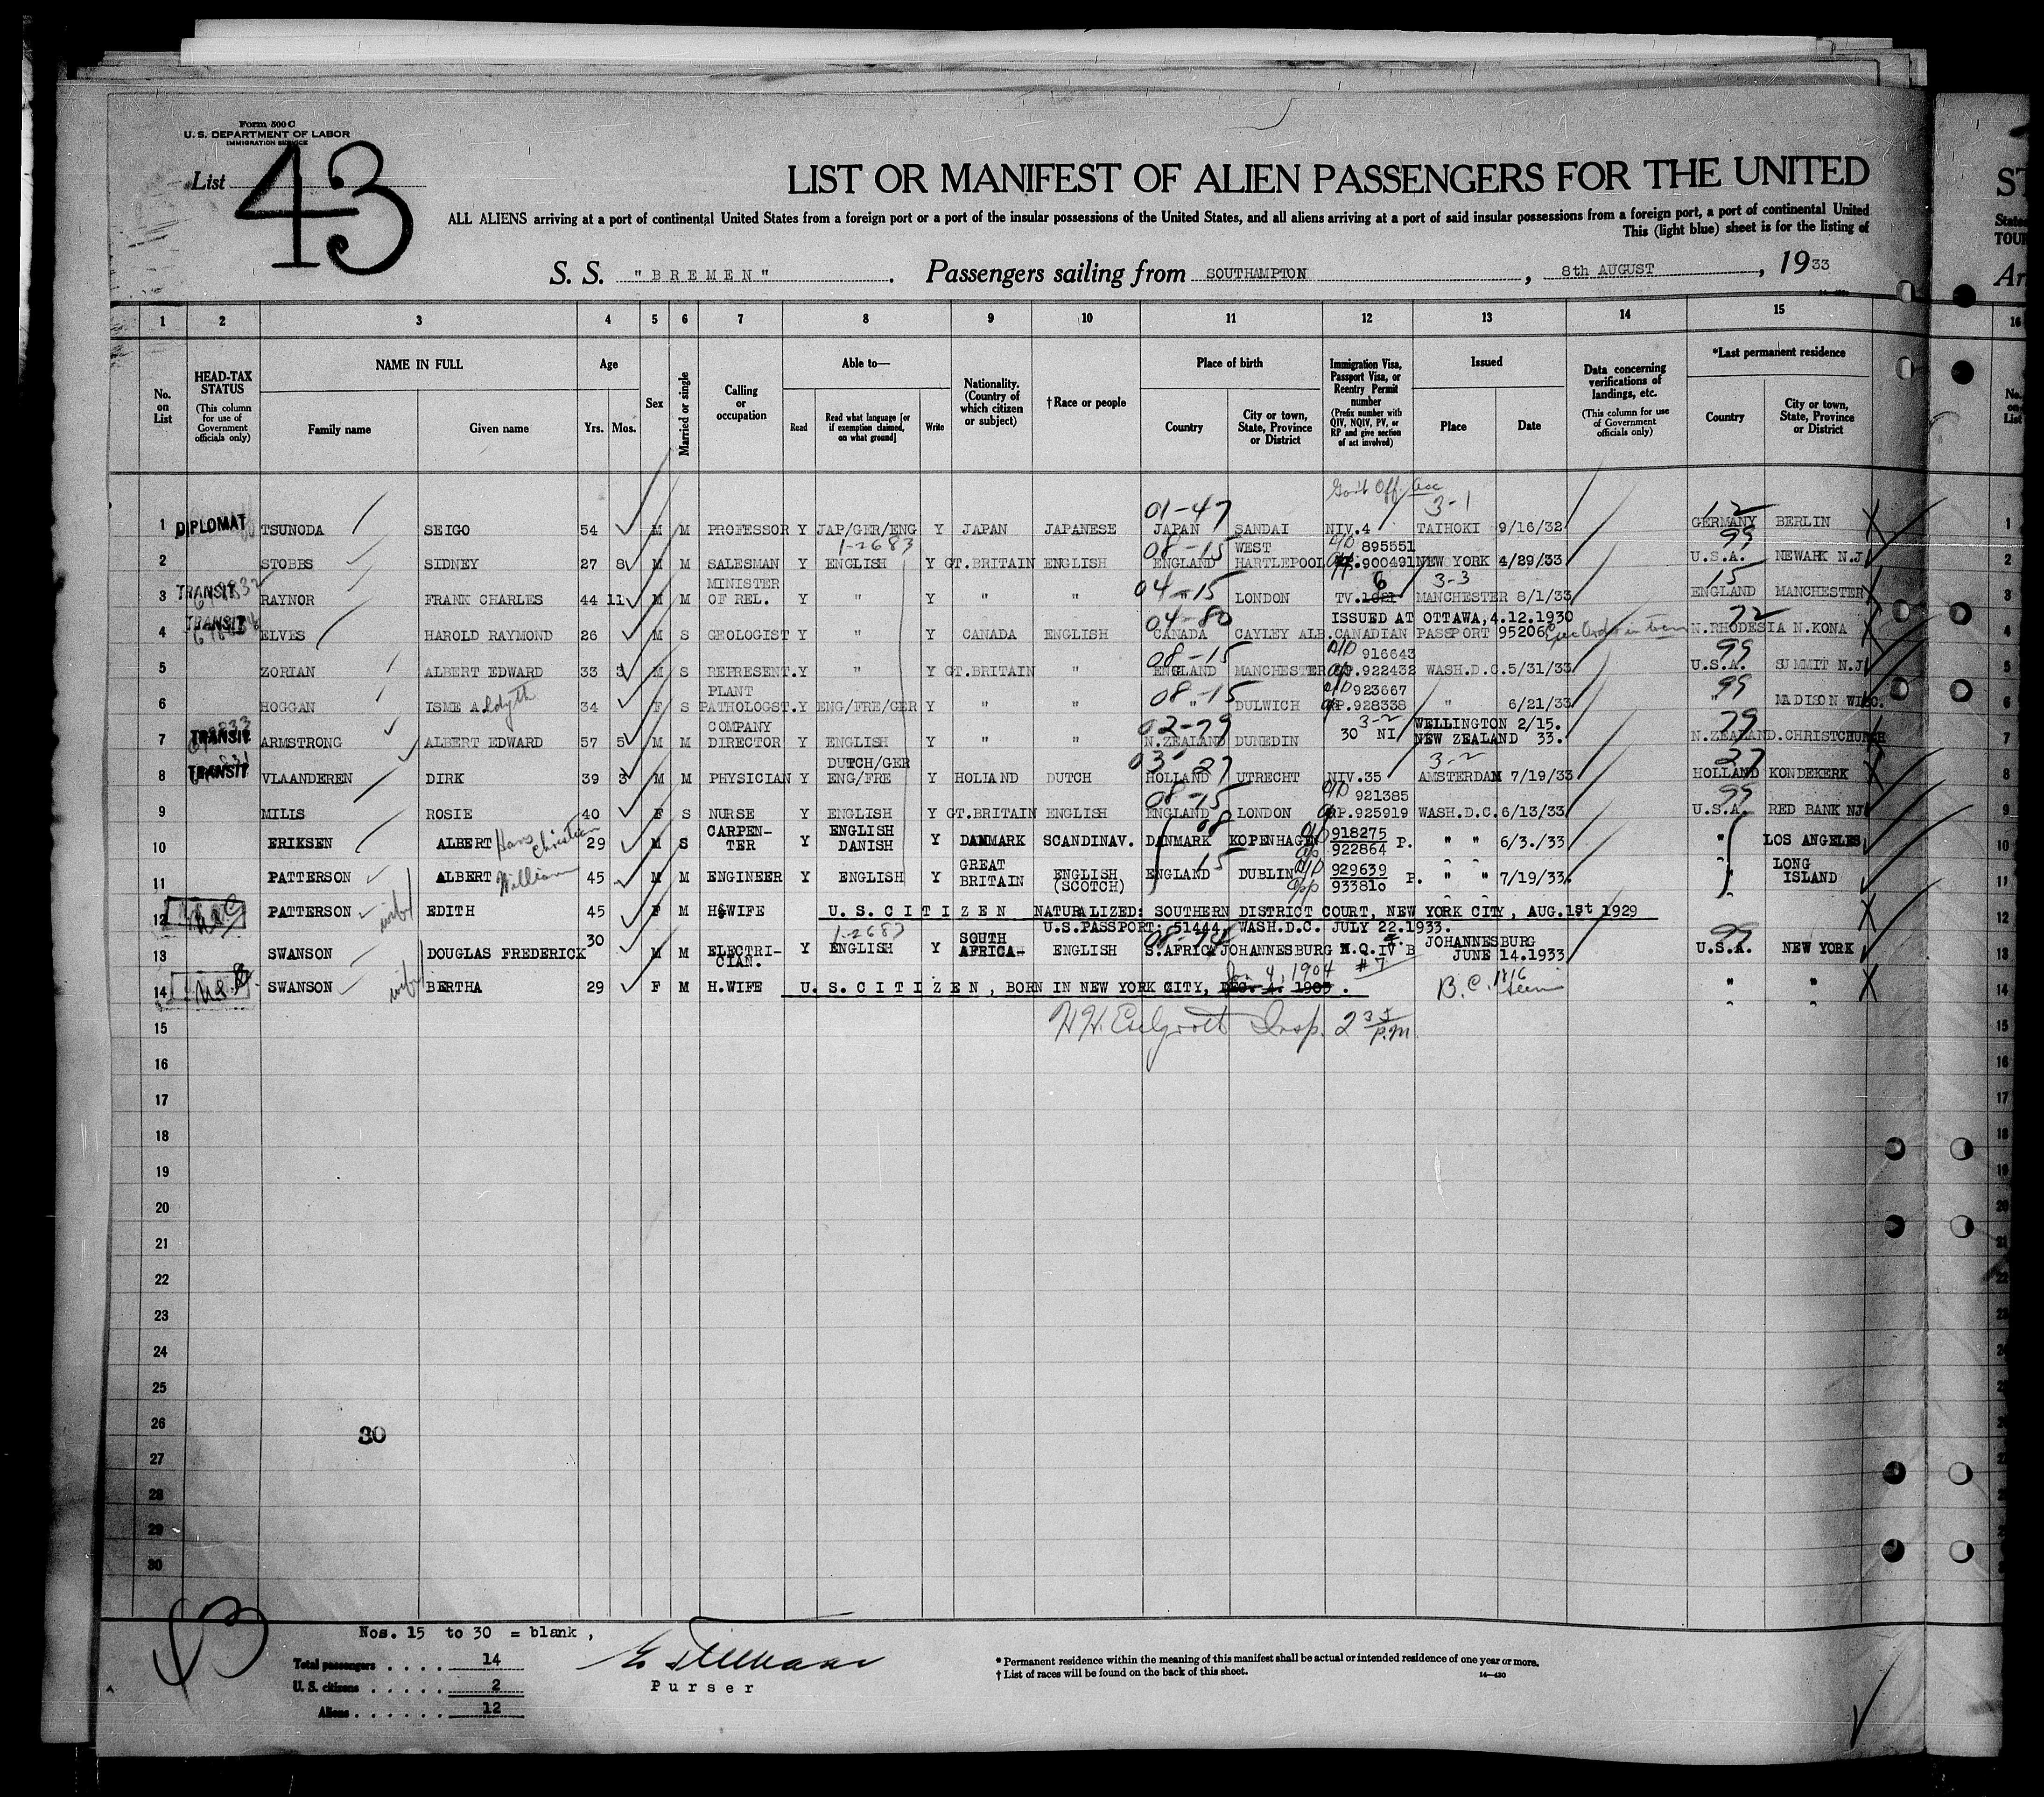 Form 500 C
U. S. DEPARTMENT OF LABOR
IMMIGRATION SERVICE
List 43
LIST OR MANIFEST OF ALIEN PASSENGERS FOR THE UNITED
ALL ALIENS arriving at a port of continental United States from a foreign port or a port of the insular possessions of the United States, and all aliens arriving at a port of said insular possessions from a foreign port, a port of continental United
This (light blue) sheet is for the listing of
S. S. "BREMEN". Passengers sailing from SOUTHAMPTON, 8th AUGUST, 1933
1 2 3 4 5 6 7 8 9 10 11 12 13 14 15 16
No. on List
HEAD-TAX STATUS (This column for use of Government officials only)
NAME IN FULL Family name Given name
Age Yrs. Mos.
Sex
Married or single
Calling or occupation
Able to— Read Read what language [or if exemption claimed, on what ground] Write
Nationality. (Country of which citizen or subject)
†Race or people
Place of birth Country City or town, State, Province or District
Immigration Visa, Passport Visa, or Reentry Permit number (Prefix number with QIV, NQIV, PV, or RP and give section of act involved)
Issued Place Date
Data concerning verifications of landings, etc. (This column for use of Government officials only)
*Last permanent residence Country City or town, State, Province or District
Gov't Off.
01-47 3-1 12
1 DIPLOMAT TSUNODA SEIGO 54 M M PROFESSOR Y JAP/GER/ENG Y JAPAN JAPANESE JAPAN SANDAI NIV.4 TAIHOKI 9/16/32 GERMANY BERLIN 1
1-2683 08-15 WEST 895551 99
2 STOBBS SIDNEY 27 8 M M SALESMAN Y ENGLISH Y GT.BRITAIN ENGLISH ENGLAND HARTLEPOOL P.900491 NEW YORK 4/29/33 U.S.A. NEWARK N.J. 2
MINISTER 04-15 6 3-3 15
3 TRANSIT RAYNOR FRANK CHARLES 44 11 M M OF REL. Y " Y " " " LONDON TV.1021 MANCHESTER 8/1/33 ENGLAND MANCHESTER 3
04-80 ISSUED AT OTTAWA, 4.12.1930 72
4 TRANSIT ELVES HAROLD RAYMOND 26 M S GEOLOGIST Y " Y CANADA ENGLISH CANADA CAYLEY ALB. CANADIAN PASSPORT 95206 N.RHODESIA N.KONA 4
08-15 916643 99
5 ZORIAN ALBERT EDWARD 33 3 M S REPRESENT. Y " Y GT.BRITAIN " ENGLAND MANCHESTER P.922432 WASH.D.C. 5/31/33 U.S.A. SUMMIT N.J. 5
PLANT 08-15 923667 99
6 HOGGAN ISME A. Edyth 34 F S PATHOLOGST. Y ENG/FRE/GER Y " " " DULWICH P.928338 " 6/21/33 " MADISON WISC. 6
COMPANY 02-79 3-2 WELLINGTON 2/15. 79
7 TRANSIT ARMSTRONG ALBERT EDWARD 57 5 M M DIRECTOR Y ENGLISH Y " " N.ZEALAND DUNEDIN 30 NI NEW ZEALAND 33. N.ZEALAND. CHRISTCHURCH 7
DUTCH/GER 03-27 3-2 27
8 TRANSIT VLAANDEREN DIRK 39 3 M M PHYSICIAN Y ENG/FRE Y HOLLAND DUTCH HOLLAND UTRECHT NIV.35 AMSTERDAM 7/19/33 HOLLAND KONDEKERK 8
08-15 921385 99
9 MILIS ROSIE 40 F S NURSE Y ENGLISH Y GT.BRITAIN ENGLISH ENGLAND LONDON P.925919 WASH.D.C. 6/13/33 U.S.A. RED BANK NJ 9
10 ERIKSEN ALBERT Hans Christian 29 M S CARPEN-TER Y ENGLISH DANISH Y DANMARK SCANDINAV. DANMARK 08 KOPENHAGEN 918275 922864 P. " " 6/3./33 " LOS ANGELES 10
11 PATTERSON ALBERT William 45 M M ENGINEER Y ENGLISH Y GREAT BRITAIN ENGLISH (SCOTCH) ENGLAND 15 DUBLIN 929639 933810 P. " " 7/19/33. " LONG ISLAND 11
12 USC PATTERSON wife EDITH 45 F M H'WIFE U.S.CITIZEN NATURALIZED: SOUTHERN DISTRICT COURT, NEW YORK CITY, AUG.1st 1929 12
U.S.PASSPORT: 51444, WASH.D.C. JULY 22.1933.
1-2683 08-74 99
13 SWANSON DOUGLAS FREDERICK 30 M M ELECTRI-CIAN. Y ENGLISH Y SOUTH AFRICA- ENGLISH S.AFRICA JOHANNESBURG N.Q.IV B #7 JOHANNESBURG JUNE 14.1933 U.S.A. NEW YORK 13
Jan 4, 1904
14 USC SWANSON wife BERTHA 29 F M H.WIFE U.S.CITIZEN, BORN IN NEW YORK CITY, DEC. 4. 1905. B.C. seen " " 14
Insp. 2 35 P.M.
15
16
17
18
19
20
21
22
23
24
25
26
27
28
29
30
30
Nos. 15 to 30 = blank,
Total passengers . . . . 14
U. S. citizens . . . . . 2
Aliens . . . . . . 12
Purser
* Permanent residence within the meaning of this manifest shall be actual or intended residence of one year or more.
† List of races will be found on the back of this sheet. 14—430